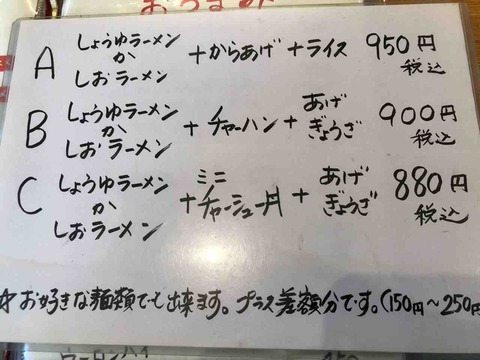 おつまみ
A しょうゆラーメン か しおラーメン +からあげ +ライス 950円 税込
B しょうゆラーメン か しおラーメン + チャーハン + あげぎょうざ 900円 税込
C しょうゆラーメン か しおラーメン + ミニチャーシュー丼 + あげぎょうざ 880円 税込
☆お好きな麺類でも出来ます。プラス差額分です。(150円〜250円
ウーロンハイ